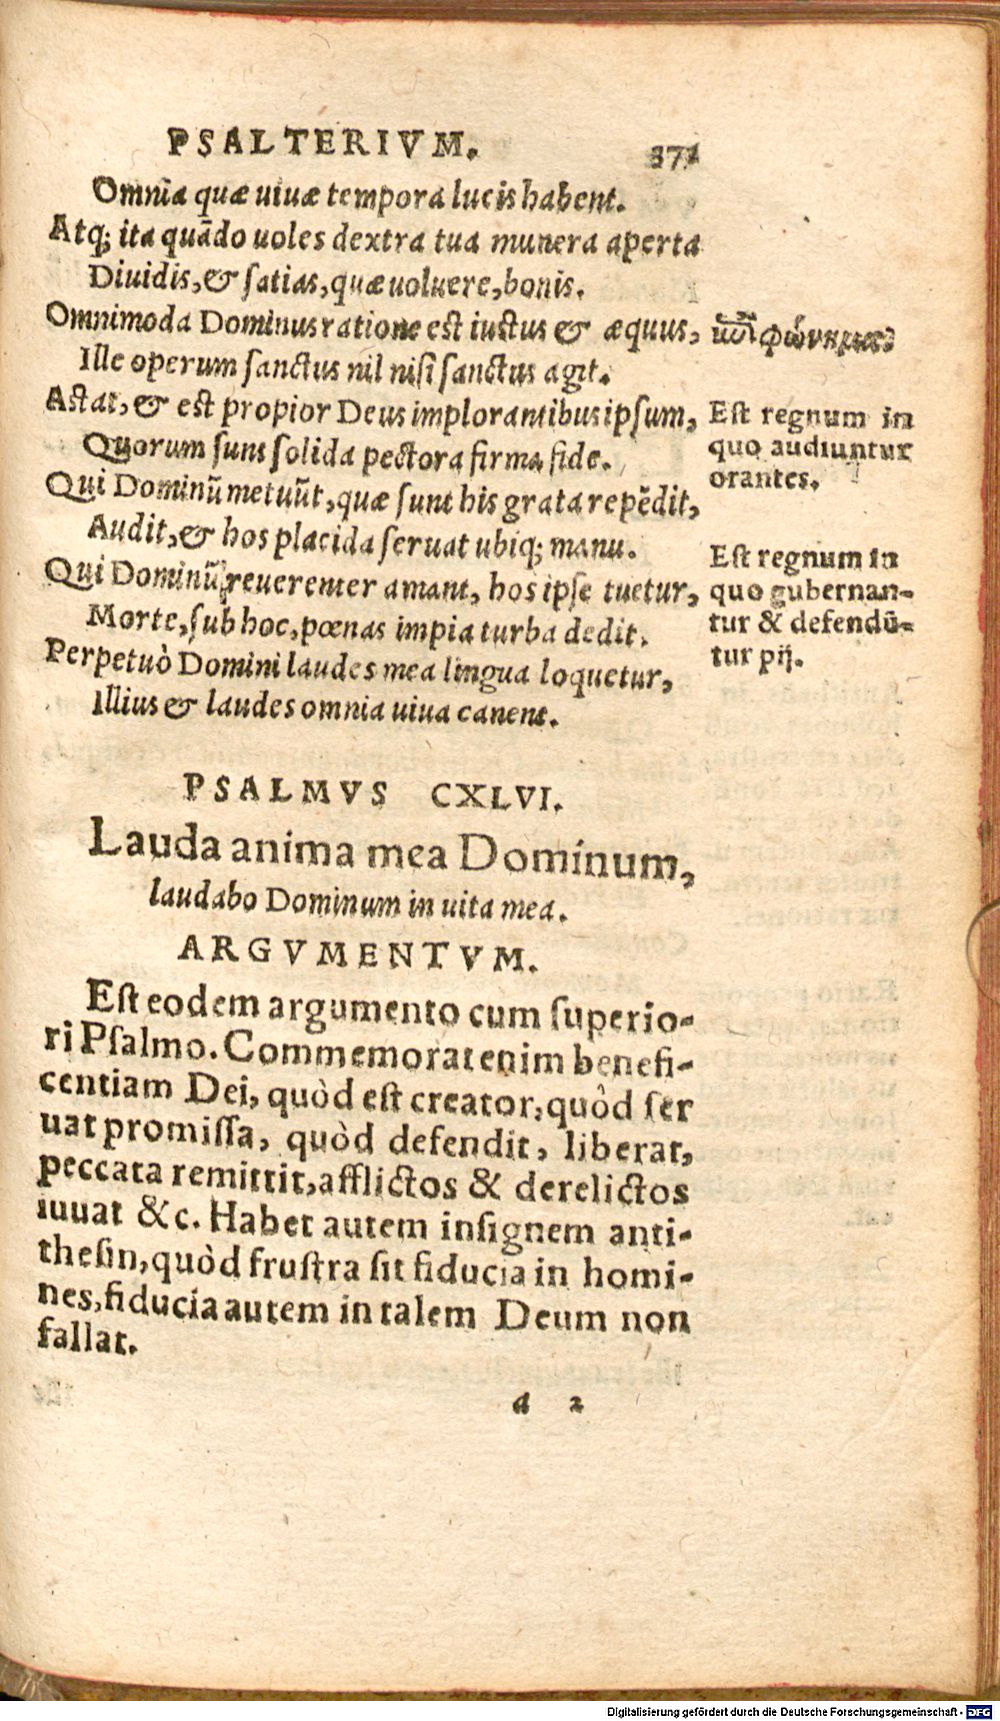 PSALTERIVM. 371
Omnia quæ uiuæ tempora lucis habent.
Atq; ita quãdo uoles dextra tua munera aperta
Diuidis, & satias, quæ uoluere, bonis.
Omnimoda Dominus ratione est iustus & æquus,
Ille operum sanctus nil nisi sanctus agit.
Astat, & est propior Deus implorantibus ipsum,
Quorum sunt solida pectora firma fide.
Qui Dominũ metuũt, quæ sunt his grata repẽdit,
Audit, & hos placida seruat ubiq; manu.
Qui Dominũ reuerenter amant, hos ipse tuetur,
Morte, sub hoc, pœnas impia turba dedit.
Perpetuò Domini laudes mea lingua loquetur,
Illius & laudes omnia uiua canent.
Est regnum in
quo audiuntur
orantes.
Est regnum in
quo gubernan-
tur & defendũ-
tur pij.
PSALMVS CXLVI.
Lauda anima mea Dominum,
laudabo Dominum in uita mea.
ARGVMENTVM.
Est eodem argumento cum superio-
ri Psalmo. Commemorat enim benefi-
centiam Dei, quòd est creator, quòd ser
uat promissa, quòd defendit, liberat,
peccata remittit, afflictos & derelictos
iuuat &c. Habet autem insignem anti-
thesin, quòd frustra sit fiducia in homi-
nes, fiducia autem in talem Deum non
fallat.
a 2
Digitalisierung gefördert durch die Deutsche Forschungsgemeinschaft - DFG